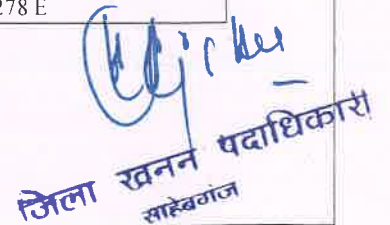 278 E
जिला खनन पदाधिकारी
साहेबगंज